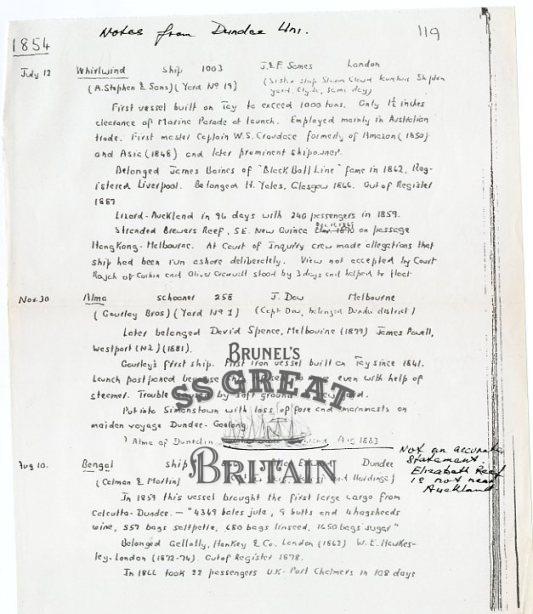 Notes from Dundee Uni.
119
1854
July 12 Whirlwind ship 1003 J.&F. Somes London
(A. Stephen & Sons) (Yard No 19) (Sister ship Storm Cloud
yard, Clyde, same day)
First vessel built on Tay to exceed 1000 tons. Only 1½ inches
clearance of Marine Parade at launch. Employed mainly in Australian
trade. First master Captain W.S. Croudace formerly of Amazon (1850)
and Asia (1848) and later prominent shipowner.
Belonged James Baines of "Black Ball Line" fame in 1862, Reg-
istered Liverpool. Belonged H. Yates, Glasgow 1866. Out of Register
1887
Lizard - Auckland in 94 days with 240 passengers in 1859.
Stranded Brewers Reef, S.E. New Guinea on passage
HongKong - Melbourne. At Court of Inquiry crew made allegations that
ship had been run ashore deliberately. View not accepted by Court
of and Oliver Cromwell stood by 3 days and helped to float
Nov. 30 Alma schooner 258 J. Dow Melbourne
(Gourlay Bros) (Yard No 1) (Capt Dow, belonged Dundee district)
Later belonged David Spence, Melbourne (1879) James Powell,
Westport (NZ) (1881).
Gourlay's first ship. First iron vessel built on Tay since 1841.
Launch postponed even with help of
steamer. Trouble by soft ground
Put into Simonstown with loss of fore and mainmasts on
maiden voyage Dundee - Geelong
Alma of Dunedin Aug 1883
Not an accurate
statement
Elizabeth Reef
is not near
Auckland
BRUNEL'S
SS GREAT
BRITAIN
Aug 10. Bengal ship Dundee
(Calman & Martin)
In 1859 this vessel brought the first large cargo from
Calcutta - Dundee. - "4369 bales jute, 9 butts and 4 hogsheads
wine, 557 bags saltpetre, 680 bags linseed, 1650 bags sugar"
Belonged Gellatly, Hankey & Co. London (1863) W.E. Hawkes-
ley - London (1872-74) Out of Register 1878.
In 1866 took 22 passengers U.K. - Port Chalmers in 108 days